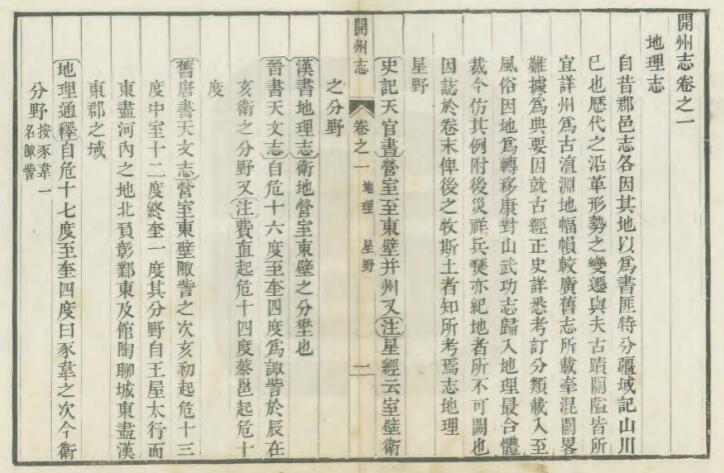 開州志卷之一
地理志
自昔郡邑志各因其地以為書匪特分疆域記山川
已也歷代之沿革形勢之變遷與夫古蹟關隘皆所
宜詳州為古澶淵地幅幀較廣舊志所載牽混闕畧
難據為典要因就古經正史詳悉考訂分類載入至
風俗因地為轉移康對山武功志歸入地理最合體
裁今仿其例附後災祥兵燹亦紀地者所不可闕也
因誌於卷末俾後之牧斯土者知所考焉志地理
星野
史記天官書營室至東壁并州又注星經云室壁衛
開州志
卷之一 地理 星野
一
之分野
漢書地理志衛地營室東壁之分壄也
晉書天文志自危十六度至奎四度為諏訾於辰在
亥衛之分野又注費直起危十四度蔡邕起危十
度
舊唐書天文志營室東壁陬訾之次亥初起危十三
度中室十二度終奎一度其分野自王屋太行而
東盡河內之地北負彰鄴東及館陶聊城東盡漢
東郡之域
地理通釋自危十七度至奎四度曰豕韋之次今衛
分野按豕韋一名陬訾